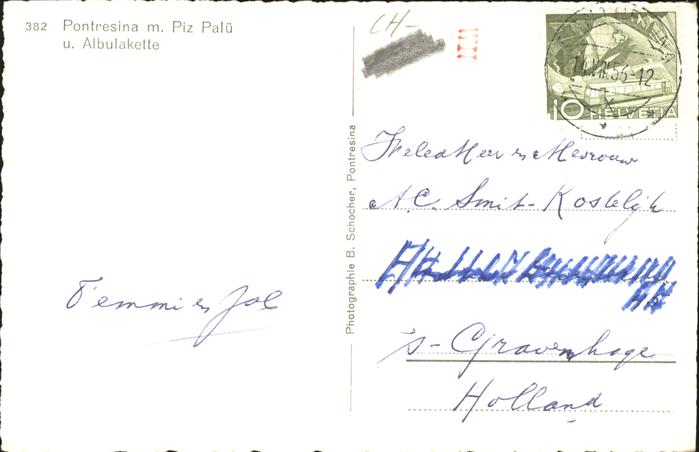 382 Pontresina m. Piz Palü
u. Albulakette
CH-
Photographie B. Schocher, Pontresina
10 HELVETIA
WelEd Heer en Mevrouw
A.C. Smit-Kostelijk
's-Gravenhage
Holland
Femmi en Jol